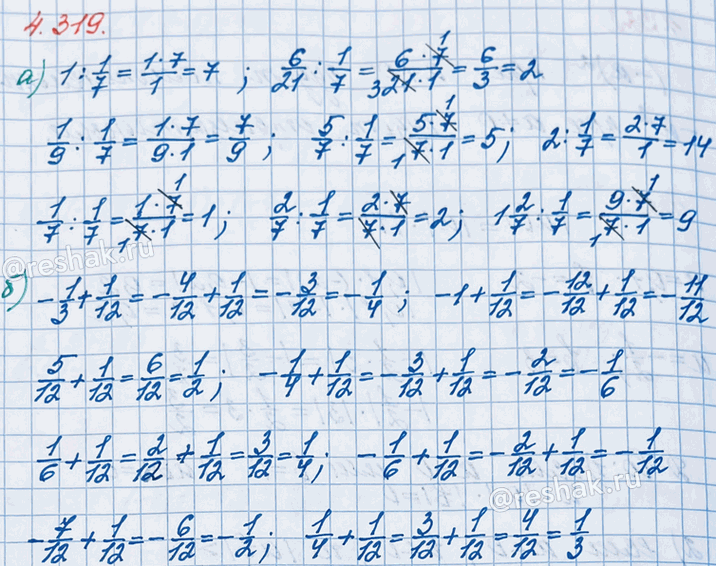 4.319.
а) 1 : 1/7 = 1·7/1 = 7 ; 6/21 : 1/7 = 6·7/21·1 = 6/3 = 2
1/9 : 1/7 = 1·7/9·1 = 7/9 ; 5/7 : 1/7 = 5·7/7·1 = 5; 2 : 1/7 = 2·7/1 = 14
1/7 : 1/7 = 1·7/7·1 = 1 ; 2/7 : 1/7 = 2·7/7·1 = 2; 1 2/7 : 1/7 = 9·7/7·1 = 9
@reshak.ru
б) -1/3 + 1/12 = -4/12 + 1/12 = -3/12 = -1/4 ; -1 + 1/12 = -12/12 + 1/12 = -11/12
5/12 + 1/12 = 6/12 = 1/2 ; -1/4 + 1/12 = -3/12 + 1/12 = -2/12 = -1/6
1/6 + 1/12 = 2/12 + 1/12 = 3/12 = 1/4 ; -1/6 + 1/12 = -2/12 + 1/12 = -1/12
@reshak.ru
-7/12 + 1/12 = -6/12 = -1/2 ; 1/4 + 1/12 = 3/12 + 1/12 = 4/12 = 1/3